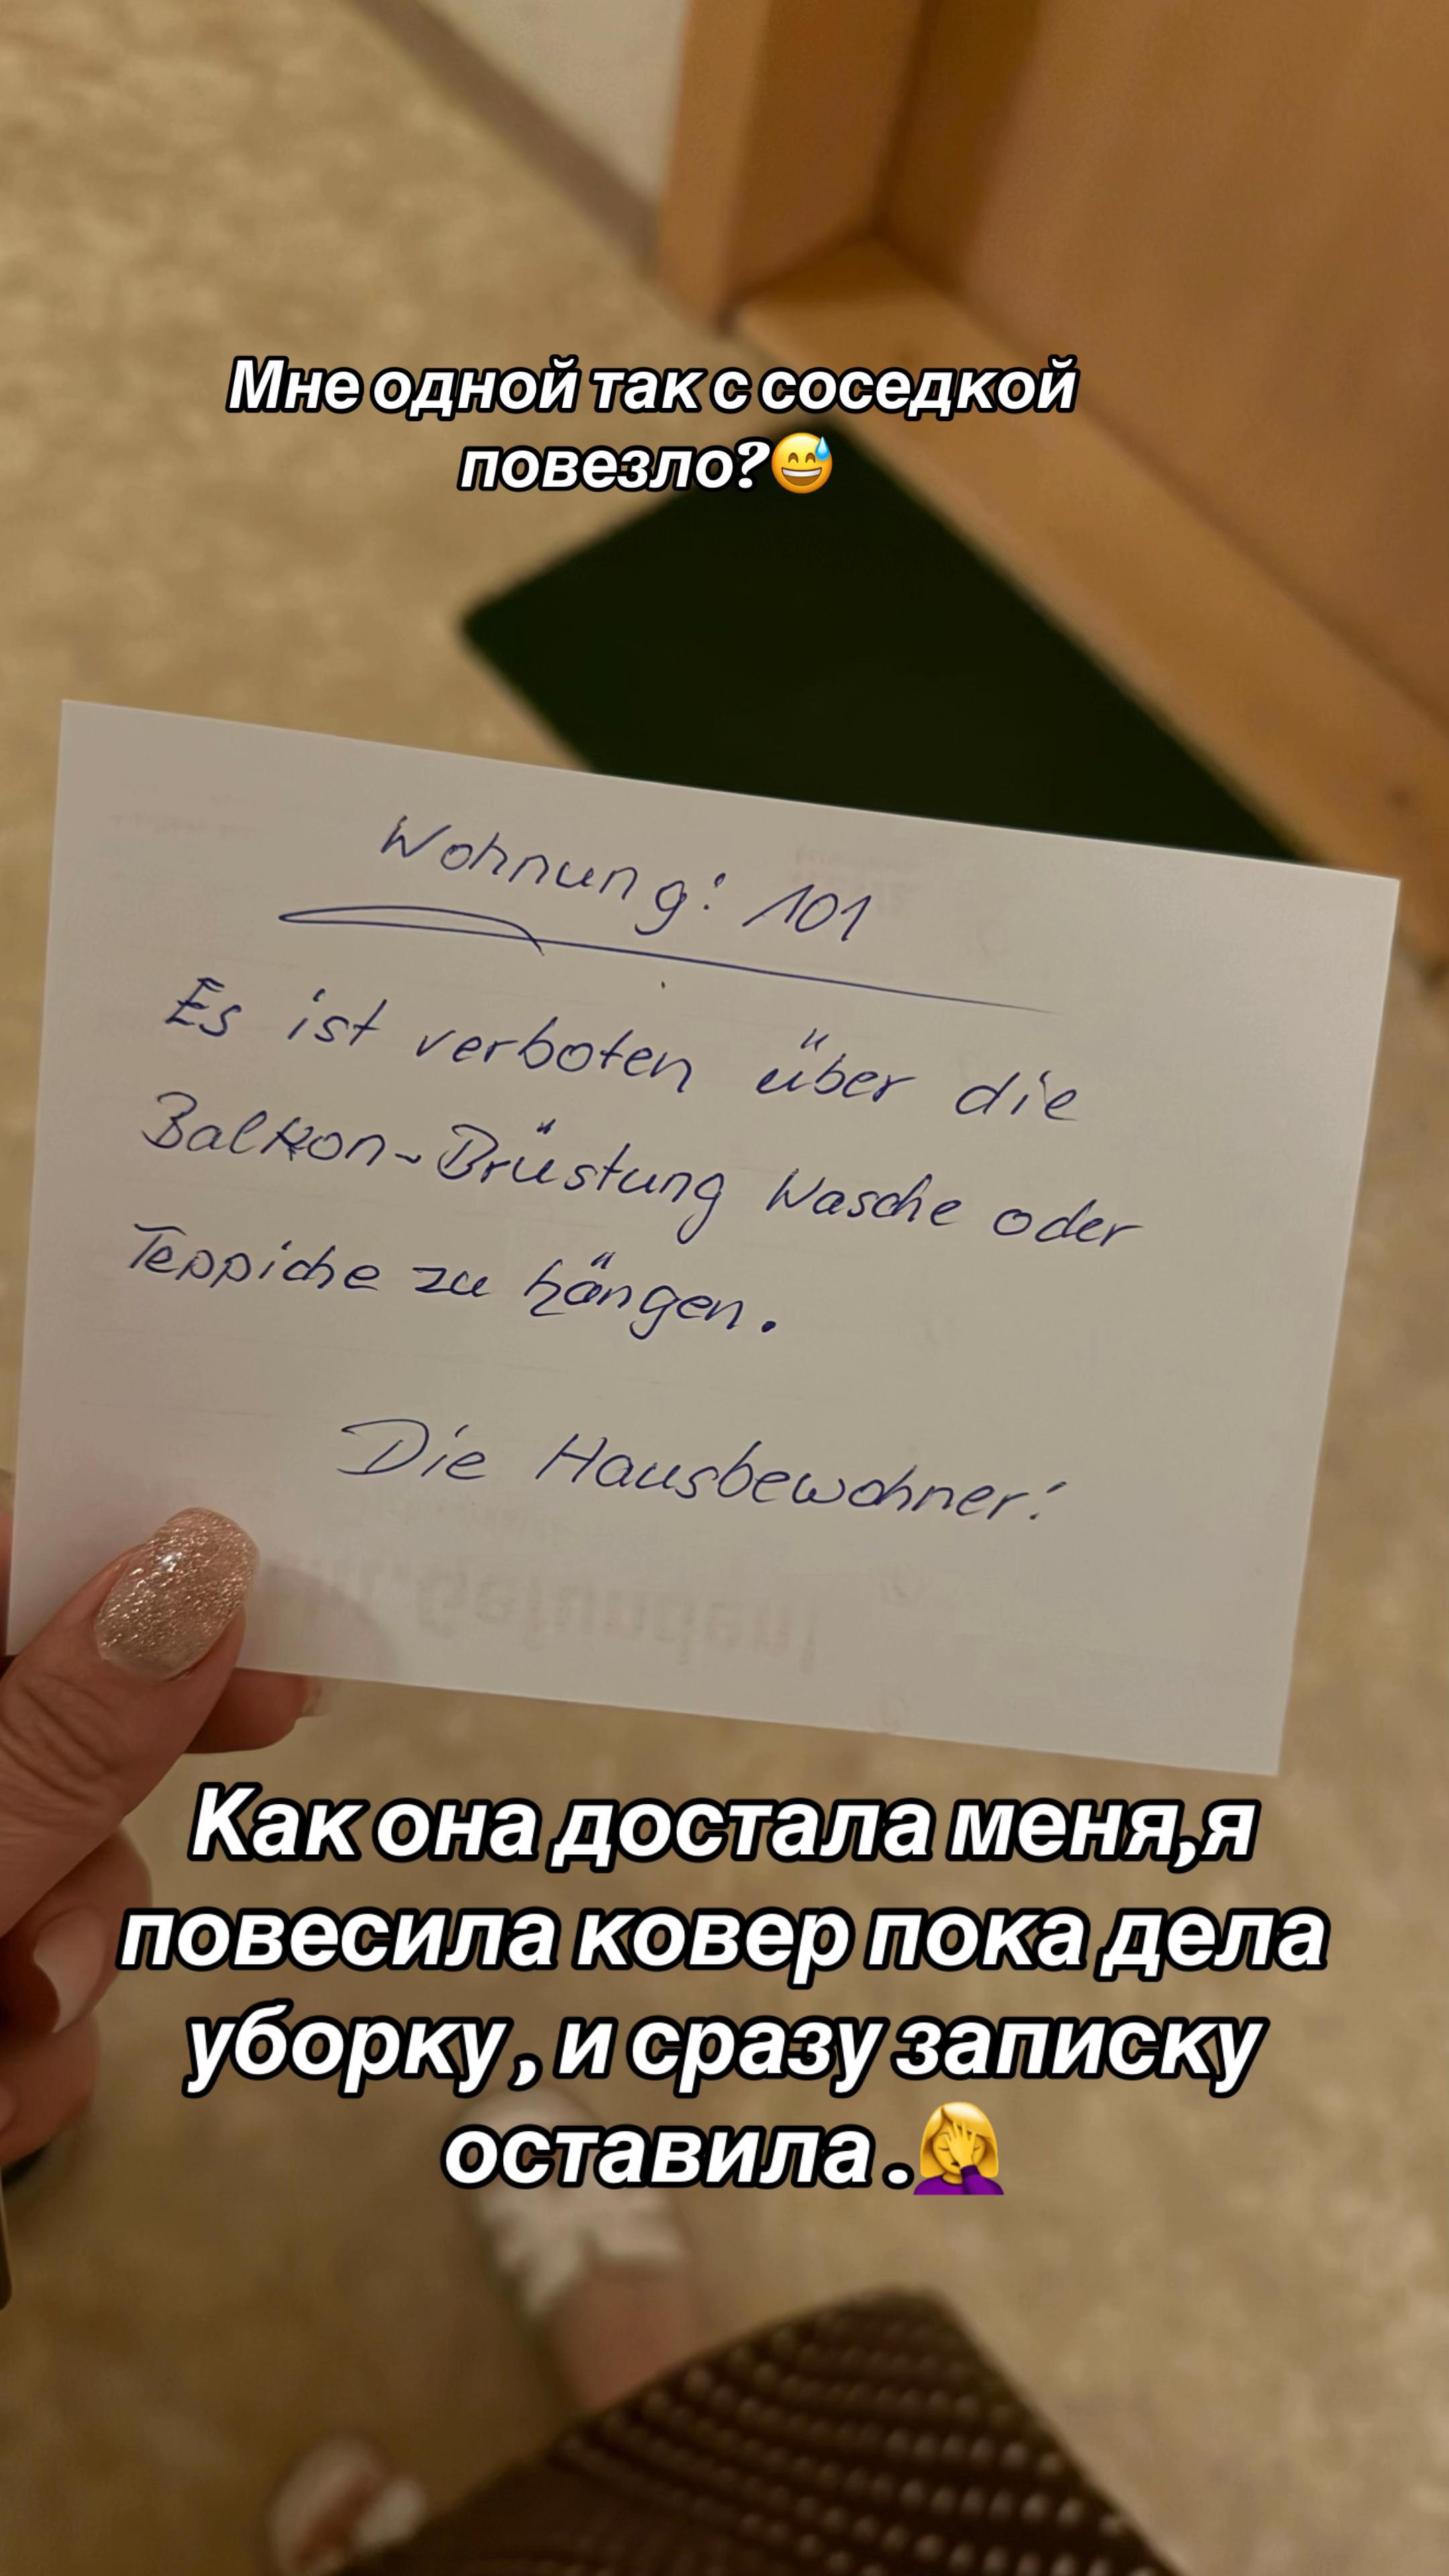 Мне одной так с соседкой
повезло?😅
Wohnung: 101
Es ist verboten über die
Balkon-Brüstung Wasche oder
Teppiche zu hängen.
Die Hausbewohner!
Gefunden!
Как она достала меня,я
повесила ковер пока дела
уборку , и сразу записку
оставила .🤦‍♀️